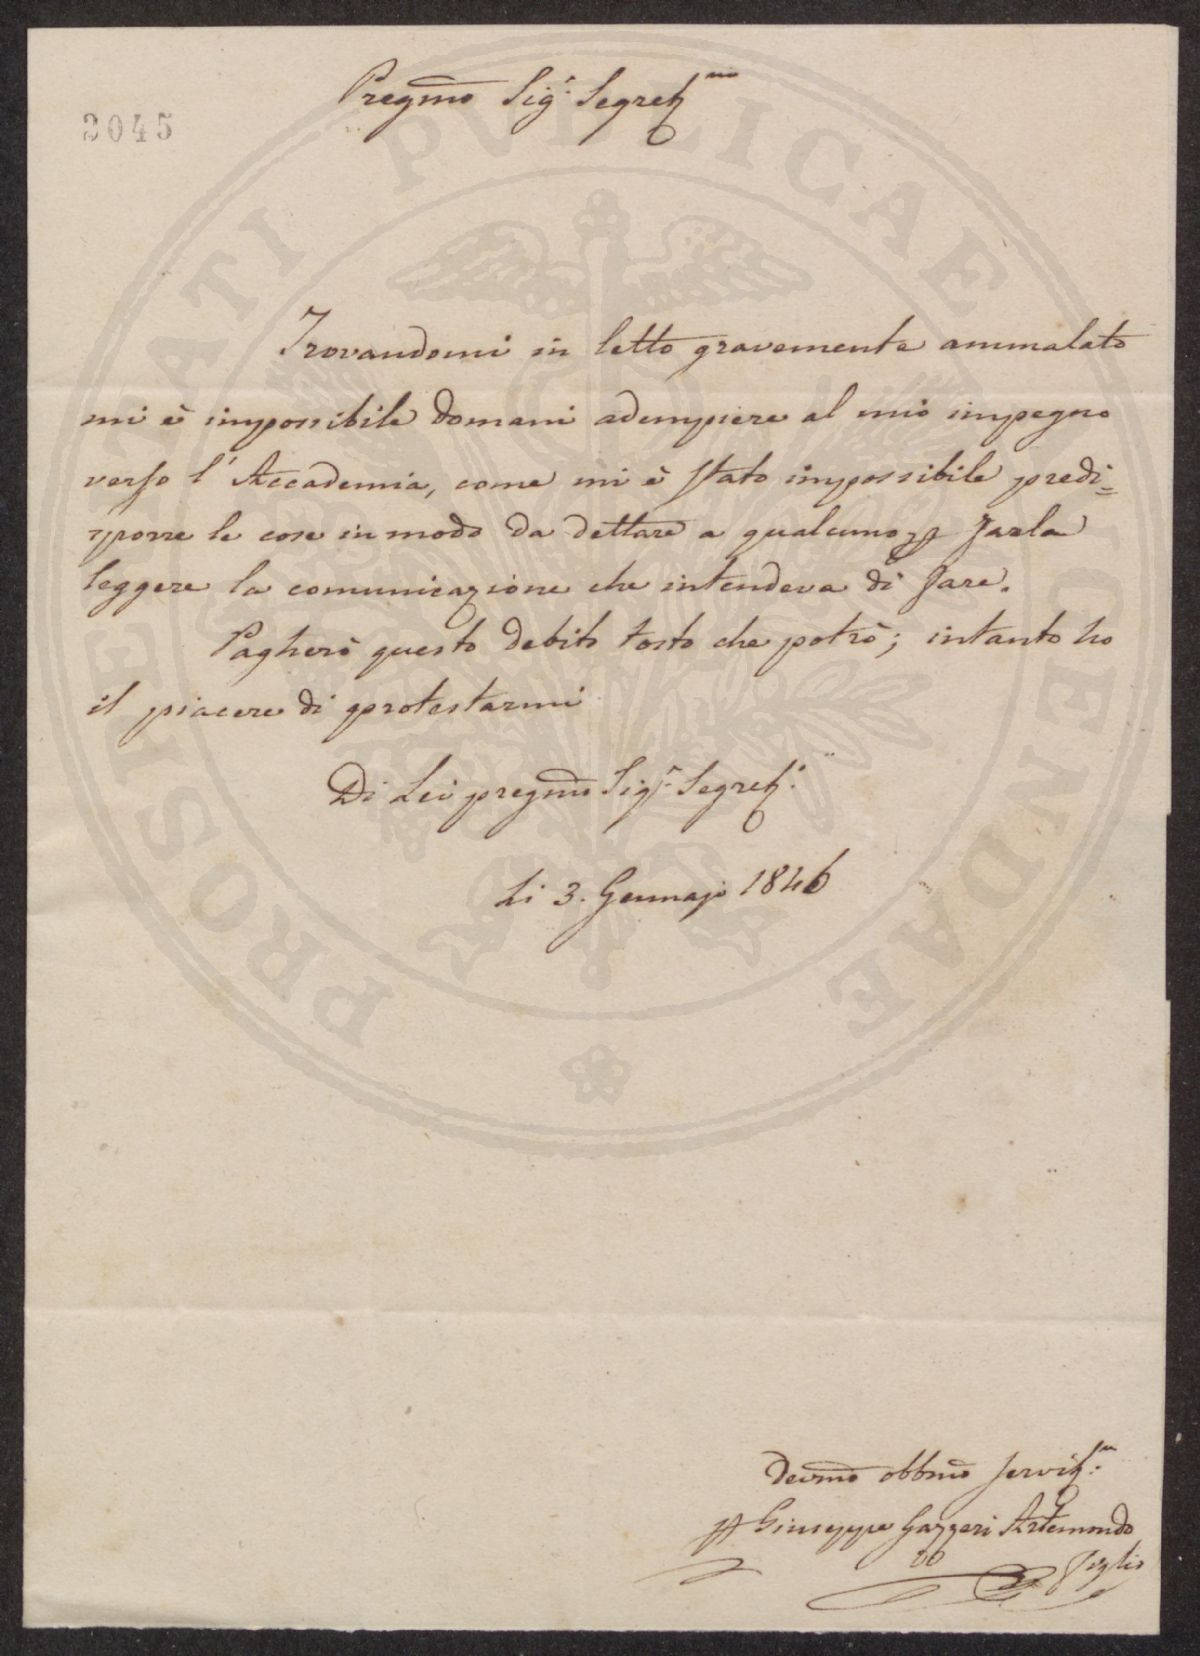 2045
Pregmo Sigr. Segret.
Trovandomi in letto gravemente ammalato
mi è impossibile domani adempiere al mio impegno
verso l'Accademia, come mi è stato impossibile predi=
sporre le cose in modo da dettare a qualcuno, e farla
leggere la comunicazione che intendeva di fare.
Pagherò questo debito tosto che potrò; intanto ho
il piacere di protestarmi
Di Lei pregmo Sigr. Segret.
Li 3. Gennajo 1846
Devmo obbmo servit.
Giuseppe Gazzeri Artemondo
figlio
PROSPERITATI PVBLICAE AVGENDAE